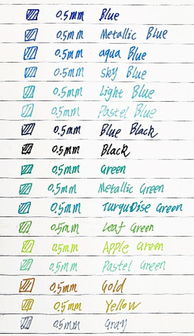 0.5mm Blue
0.5mm Metallic Blue
0.5mm aqua Blue
0.5mm sky Blue
0.5mm Light Blue
0.5mm Pastel Blue
0.5mm Blue Black
0.5mm Black
0.5mm Green
0.5mm Metallic Green
0.5mm Turquoise Green
0.5mm Leaf Green
0.5mm Apple Green
0.5mm Pastel Green
0.5mm Gold
0.5mm Yellow
0.5mm Gray